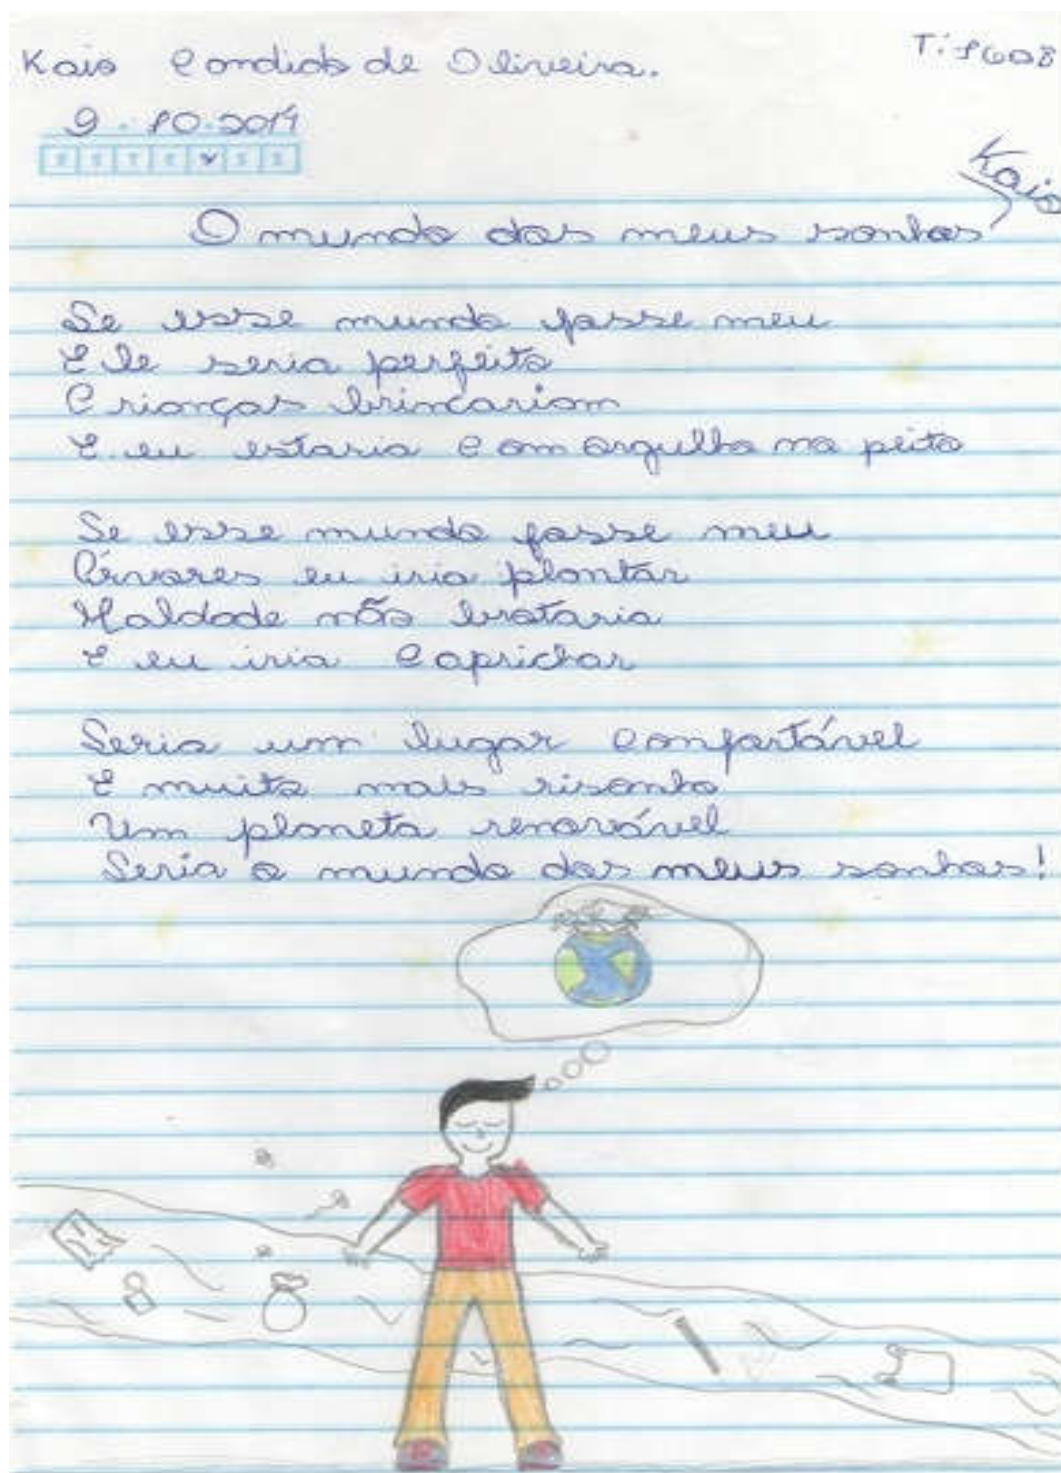 Kaio Condido de Oliveira.
9.10.2014
Kaio
O mundo dos meus sonhos
Se esse mundo fosse meu
Ele seria perfeito
Crianças brincariam
E eu estaria com orgulho no peito
Se esse mundo fosse meu
Árvores eu iria plantar
Maldade não brotaria
E eu iria caprichar
Seria um lugar confortável
E muito mais risonho
Um planeta renovável
Seria o mundo dos meus sonhos!